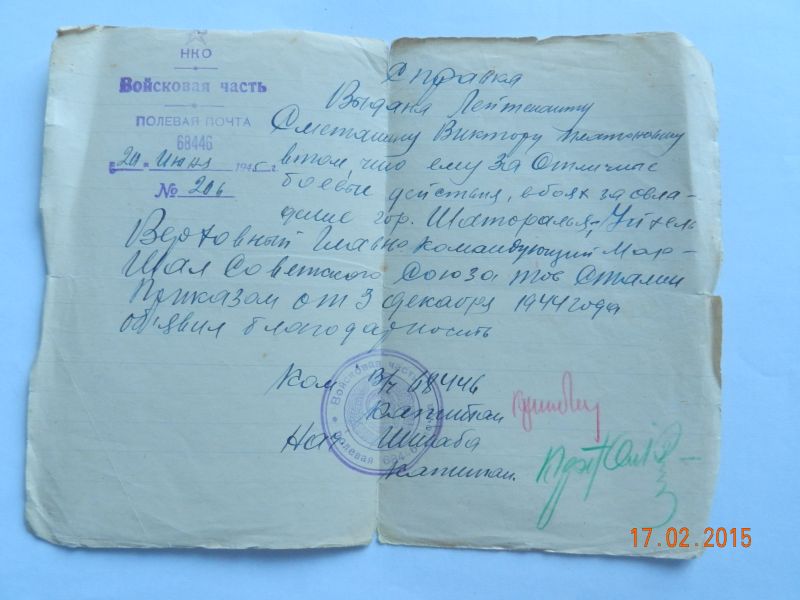 НКО
Войсковая часть
ПОЛЕВАЯ ПОЧТА
68446
20 июня 1945 г.
№ 206
Справка
Выдана Лейтенанту
Сметанину Виктору
в том, что ему за отличные
боевые действия, в боях за овла-
дение гор. Шаторалья-Уйхель
Верховный Главнокомандующий Мар-
шал Советского Союза тов Сталин
Приказом от 3 декабря 1944 года
объявил благодарность
Ком В/ч 68446
Капитан
Нач Штаба
Капитан.
Войсковая часть
полевая
17.02.2015